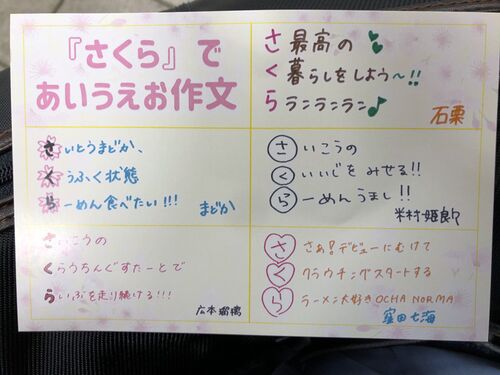 『さくら』で
あいうえお作文
さ 最高の
く 暮らしをしよう〜!!
ら ランランラン♪
石栗
さいとうまどか、
くうふく状態
らーめん食べたい!!!
まどか
さいこうの
くいいじをみせる!!
らーめんうまし!!
米村姫良々
さいこうの
くらうちんぐすたーとで
らいぶを走り続ける!!!
広本瑠璃
さ さぁ!デビューにむけて
く クラウチングスタートする
ら ラーメン大好きOCHA NORMA
窪田七海